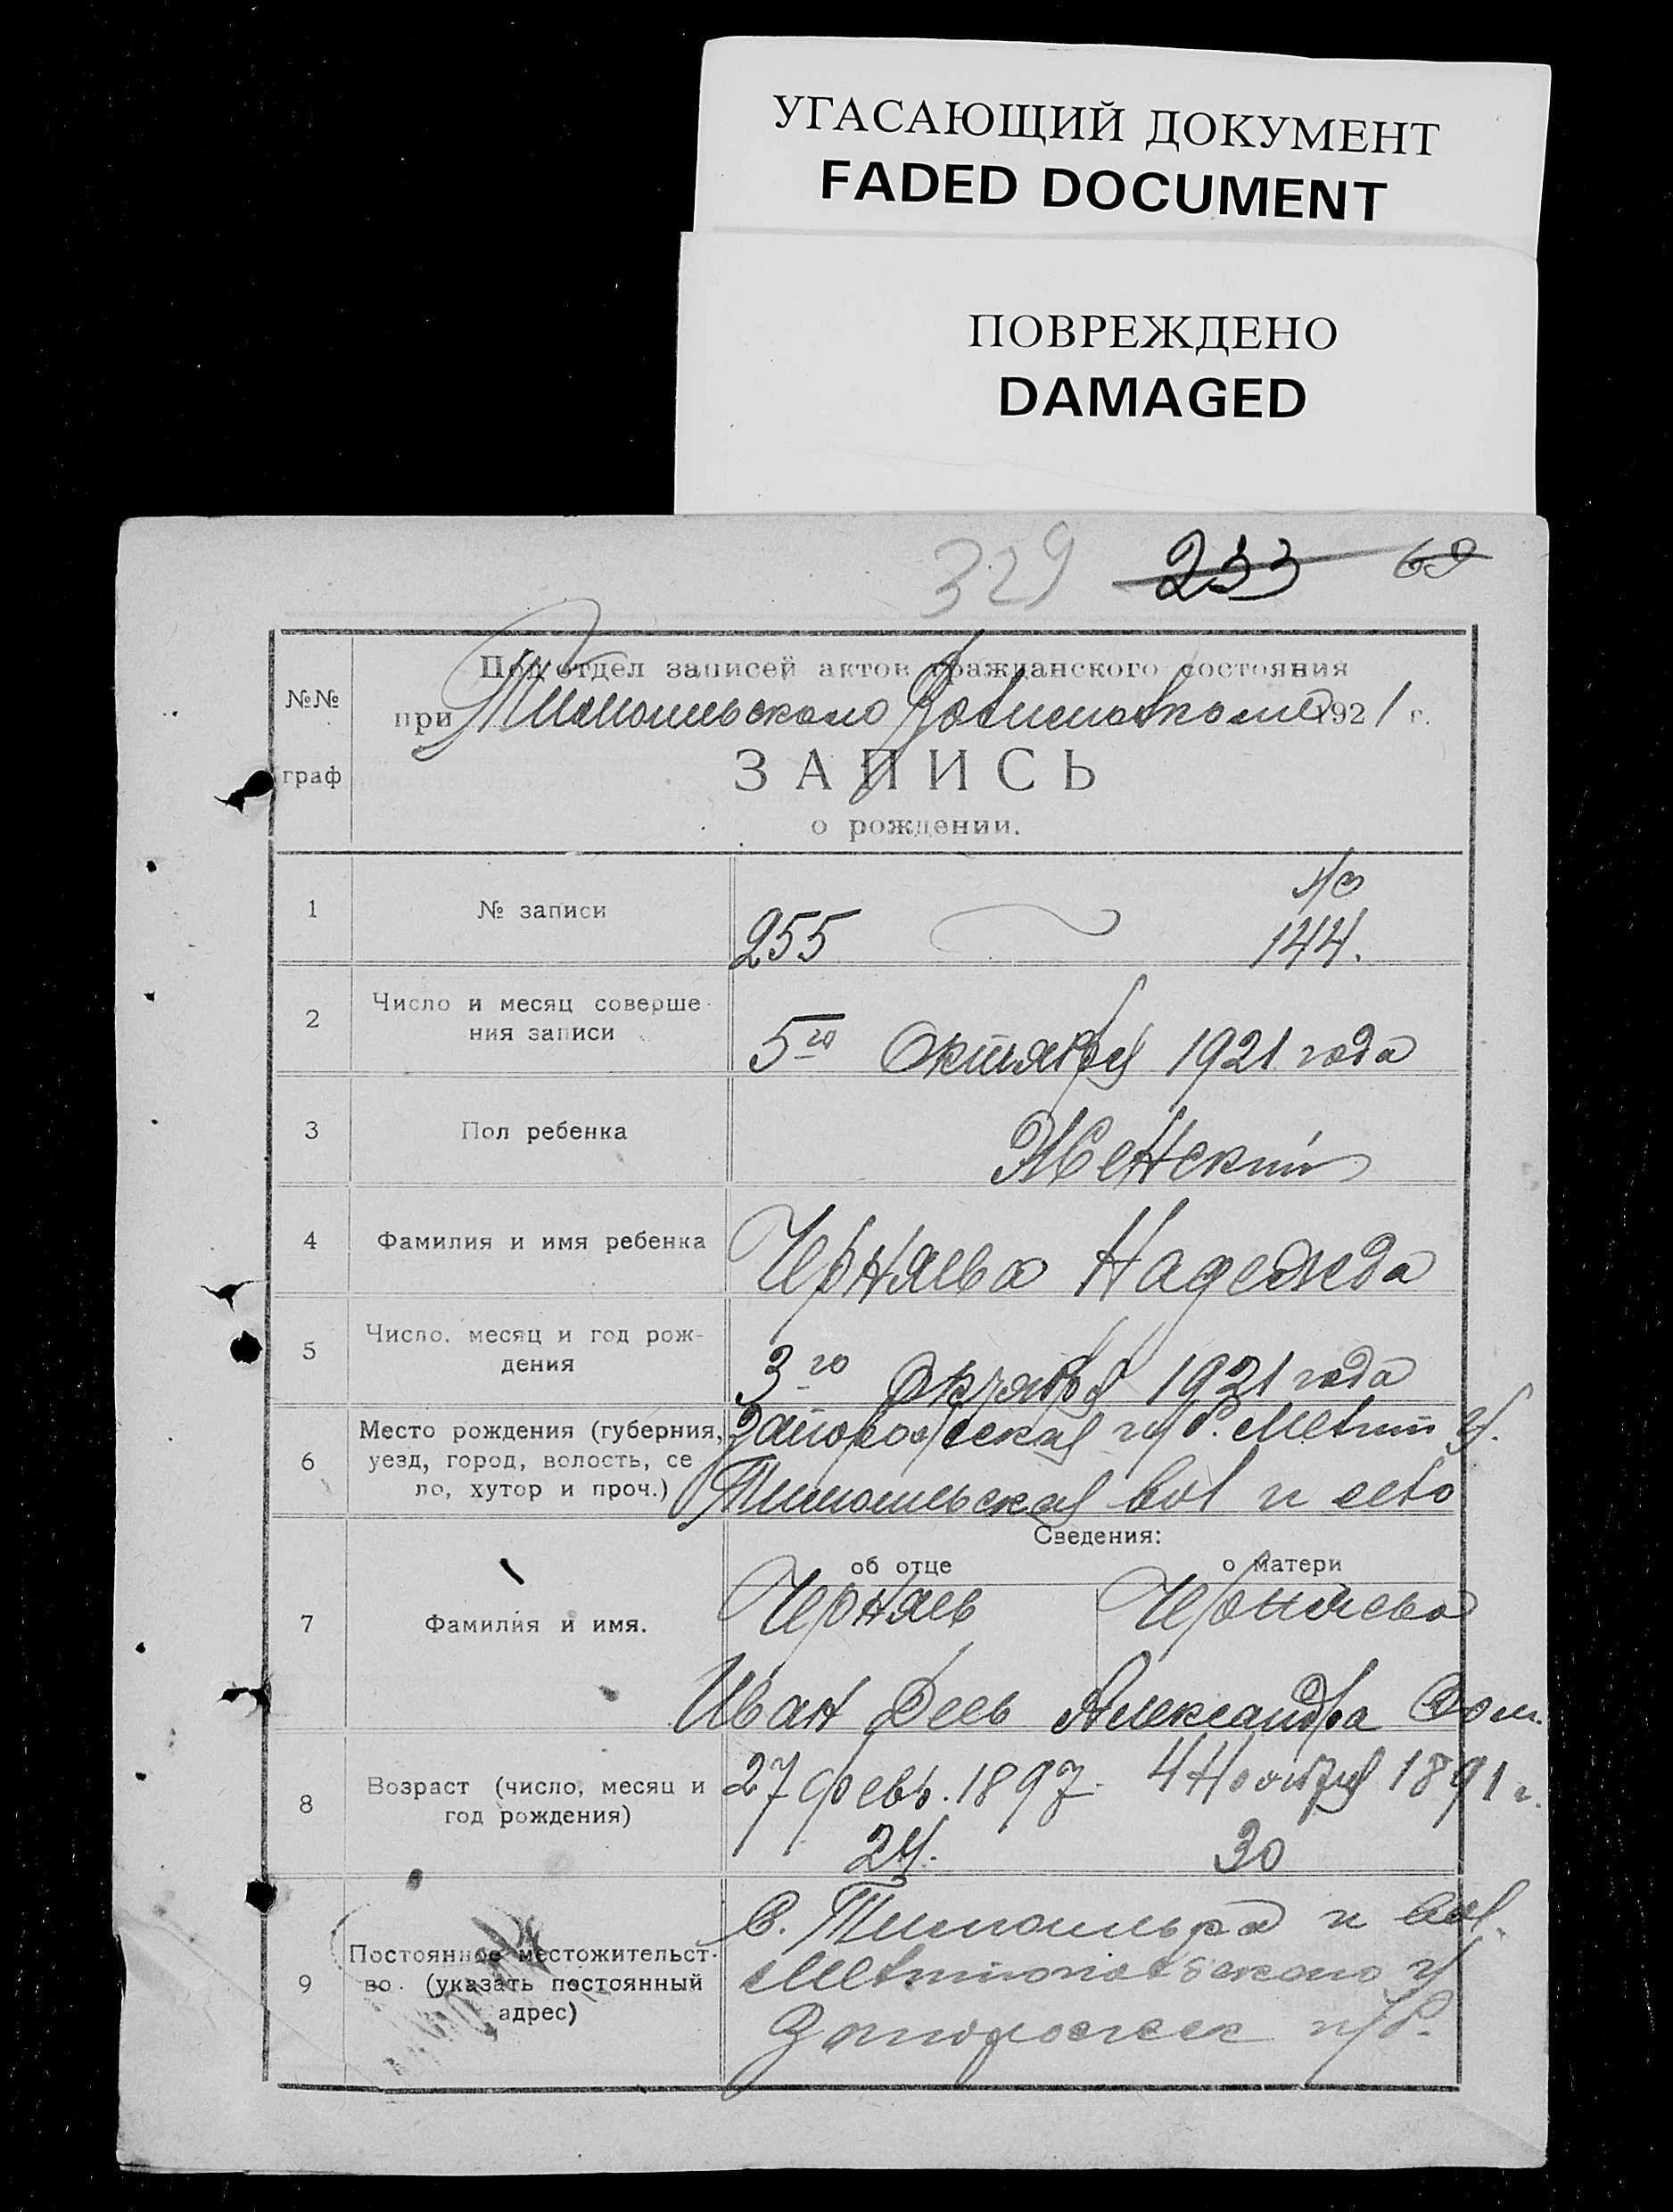 УГАСАЮЩИЙ ДОКУМЕНТ
FADED DOCUMENT
ПОВРЕЖДЕНО
DAMAGED
329 233 69
Подотдел записей актов гражданского состояния
№№
при 1921 г.
граф
ЗАПИСЬ
о рождении.
1 № записи 255 144.
2 Число и месяц соверше-
ния записи 5го Октября 1921 года
3 Пол ребенка Женский
4 Фамилия и имя ребенка Черняева Надежда
5 Число. месяц и год рож-
дения 3го Октября 1921 года
6 Место рождения (губерния,
уезд, город, волость, се
ло, хутор и проч.)
Запорожская губ. Мелит у.
Тимошевская вол и село
Сведения:
об отце о матери
7 Фамилия и имя.
Черняев Черняева
Иван Александра
8 Возраст (число, месяц и
год рождения)
27 февь. 1897 4 Ноября 1891 г.
24. 30
9 Постоянное местожительст-
во. (указать постоянный
адрес)
с. и вол.
Мелитопольского у
Запорожск губ.